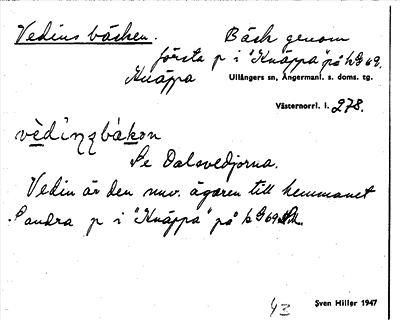 Vedins bäcken. Bäck genom
första p i "Knäppa" på kG69.
Knäppa Ullångers sn, Ångermanl. s. doms. tg.
Västernorrl. l. 278.
vèdìnʒbákən
Se Dalsvedjorna.
Vedin är den nuv. ägaren till hemmanet
andra p i "Knäppa" på kG69
43 Sven Hiller 1947